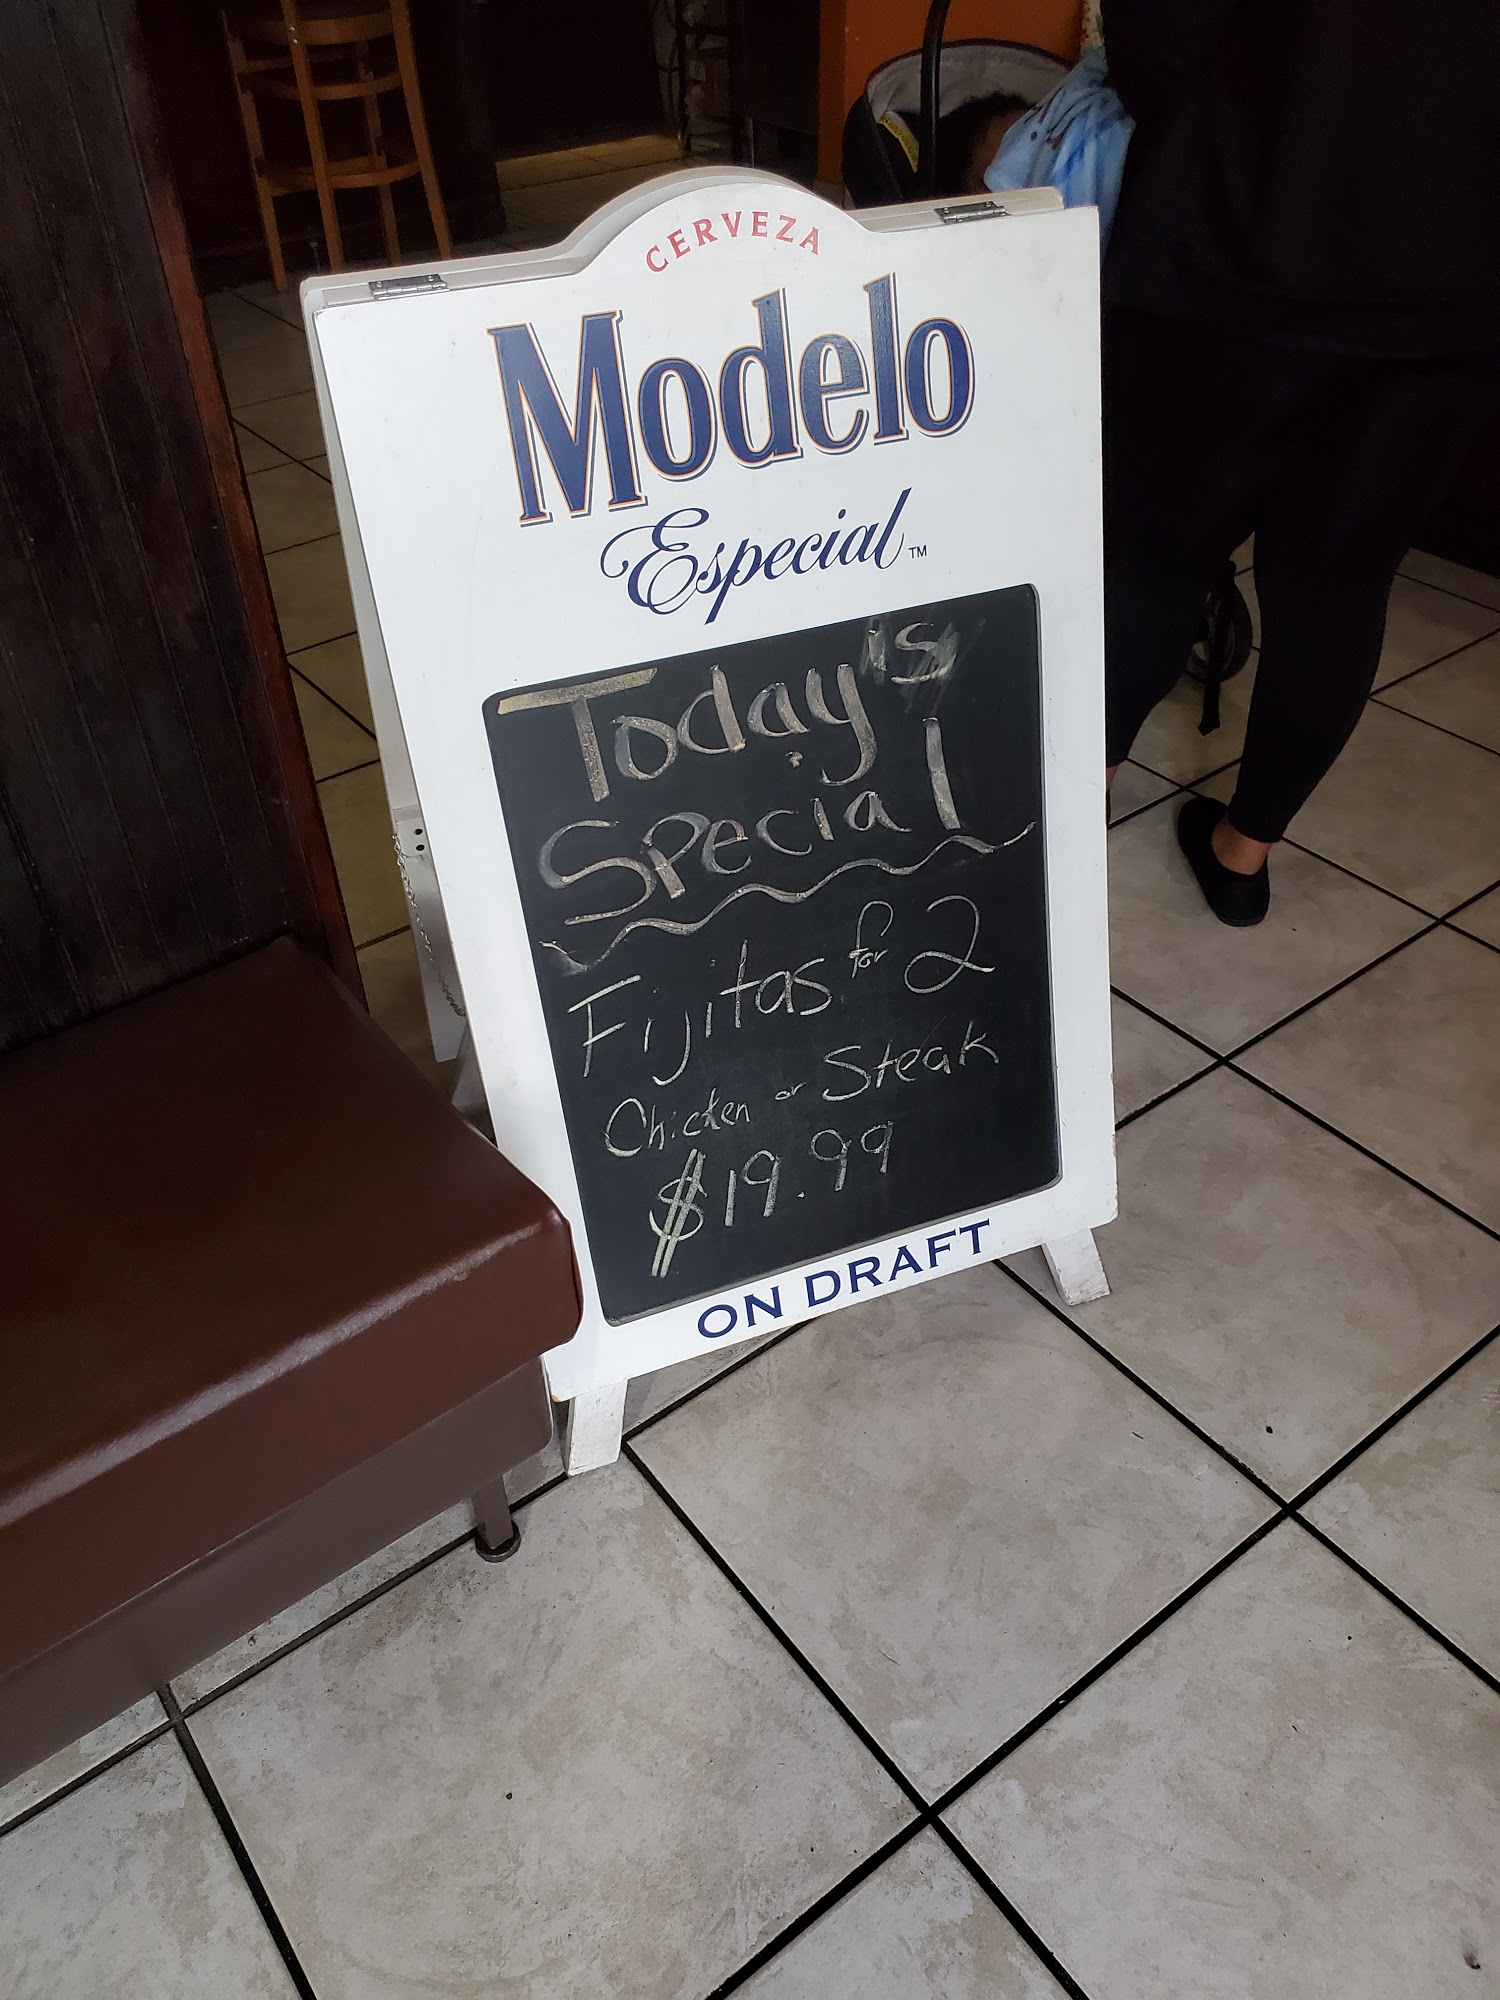 CERVEZA
Modelo
Especial™
Today's
Special
Fijitas for 2
Chicken or Steak
$19.99
ON DRAFT